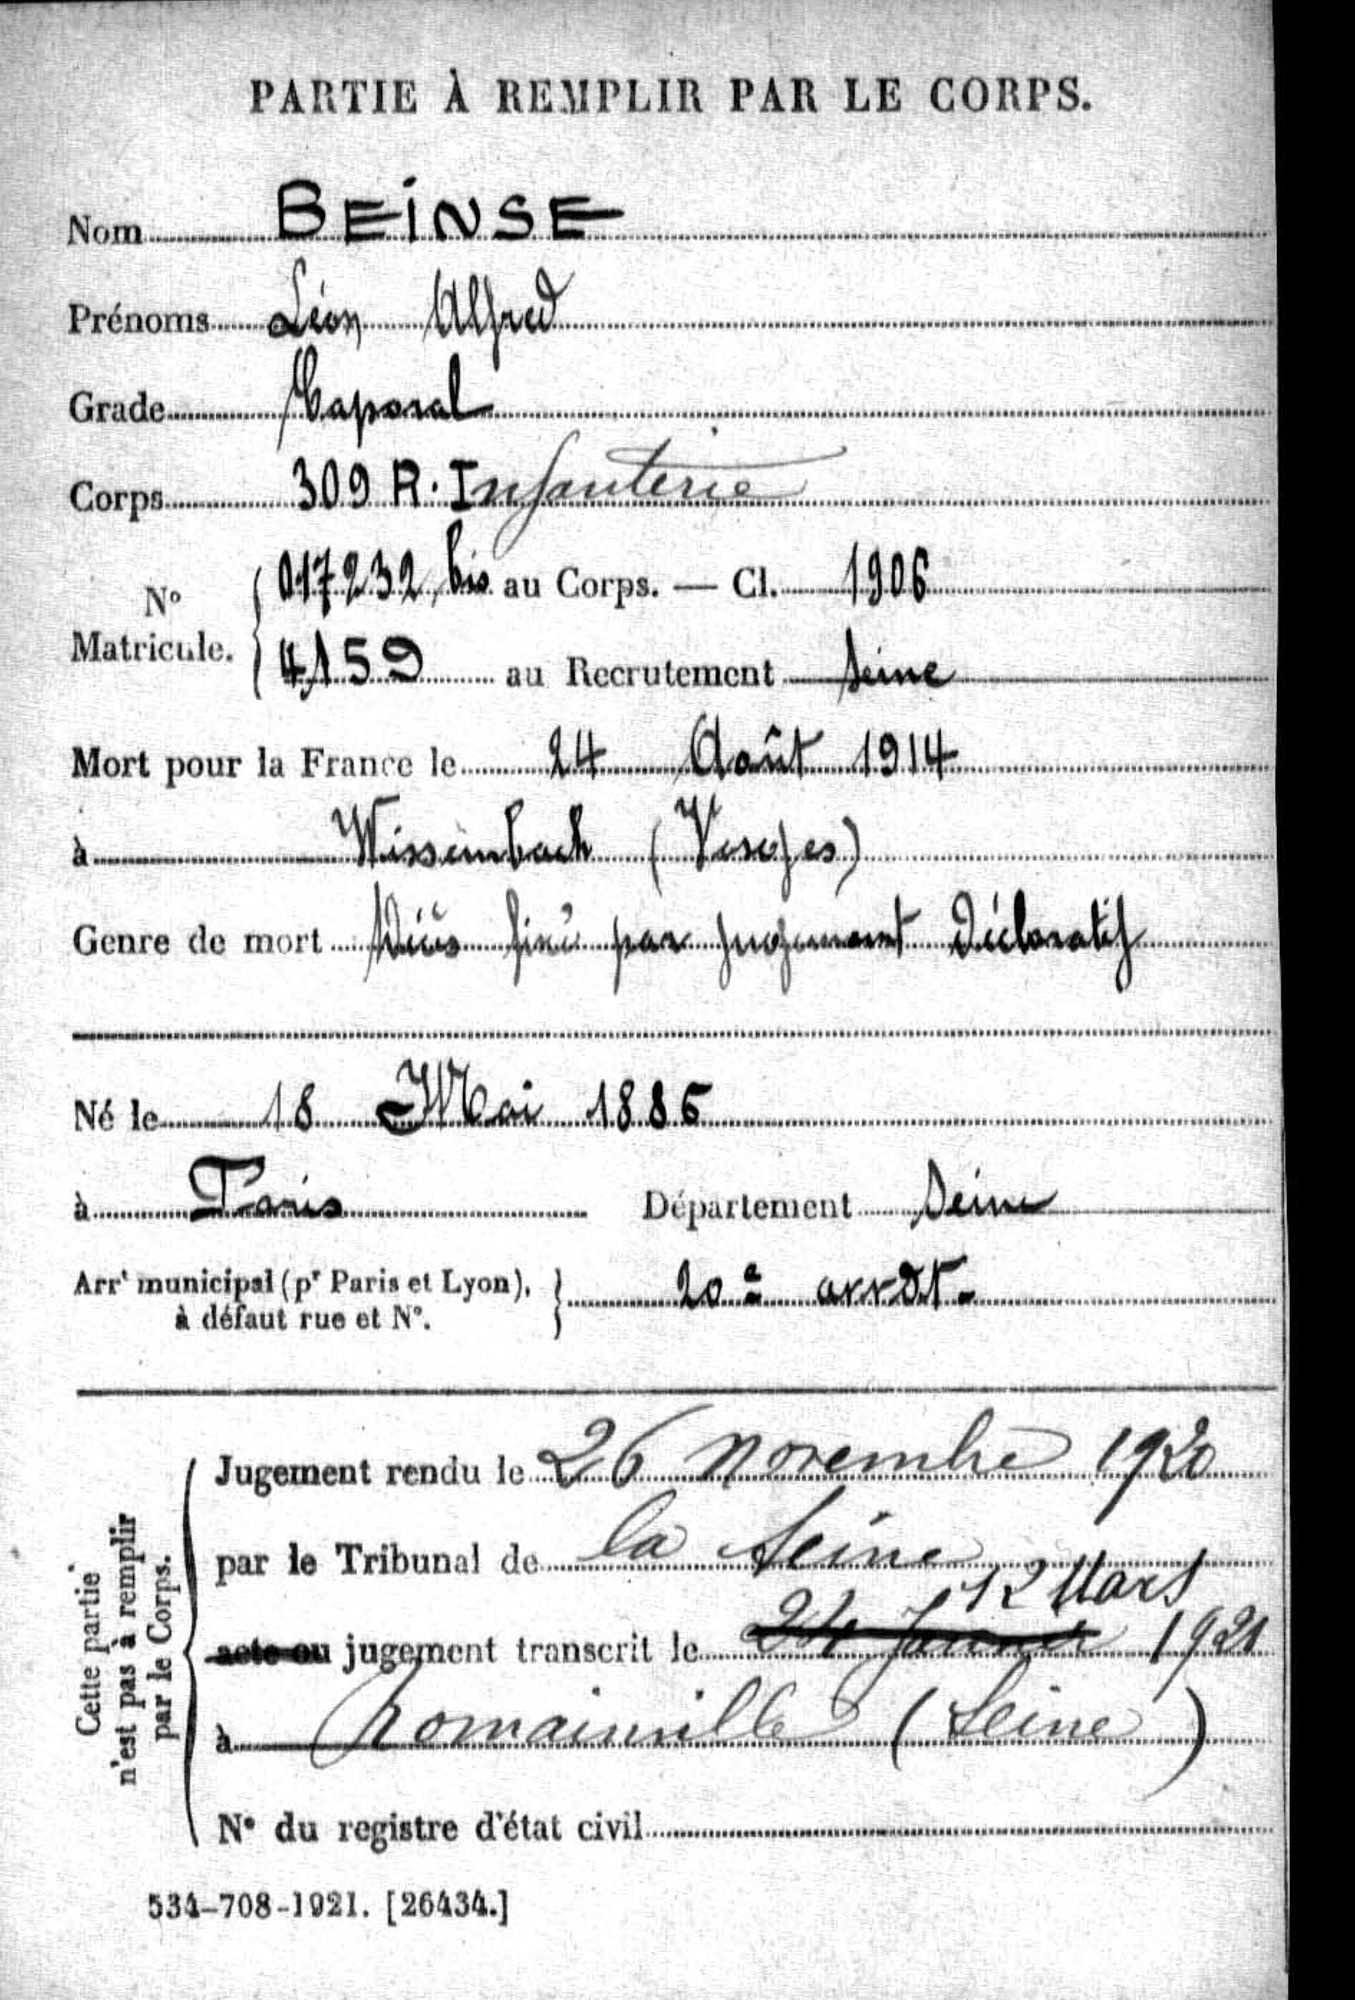 PARTIE À REMPLIR PAR LE CORPS.
Nom BEINSE
Prénoms Léon Alfred
Grade Caporal
Corps 309 R. Infanterie
N° Matricule. 017232 bis au Corps. — Cl. 1906
4159 au Recrutement Seine
Mort pour la France le 24 Août 1914
à Wissembach (Vosges)
Genre de mort Décès fixé par jugement déclaratif
Né le 18 Mai 1886
à Paris Département Seine
Arrt municipal (pr Paris et Lyon), 20e arrdt.
à défaut rue et N°.
Cette partie n'est pas à remplir par le Corps.
Jugement rendu le 26 novembre 1920
par le Tribunal de la Seine
12 Mars
acte ou jugement transcrit le 24 Janvier 1921
à Romainville (Seine)
N° du registre d'état civil
534-708-1921. [26434.]